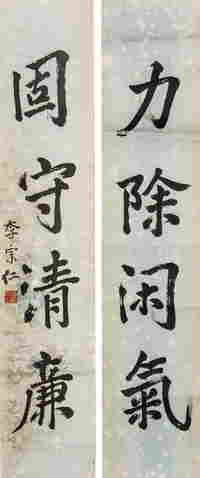 力除闲氣
固守清廉
李宗仁